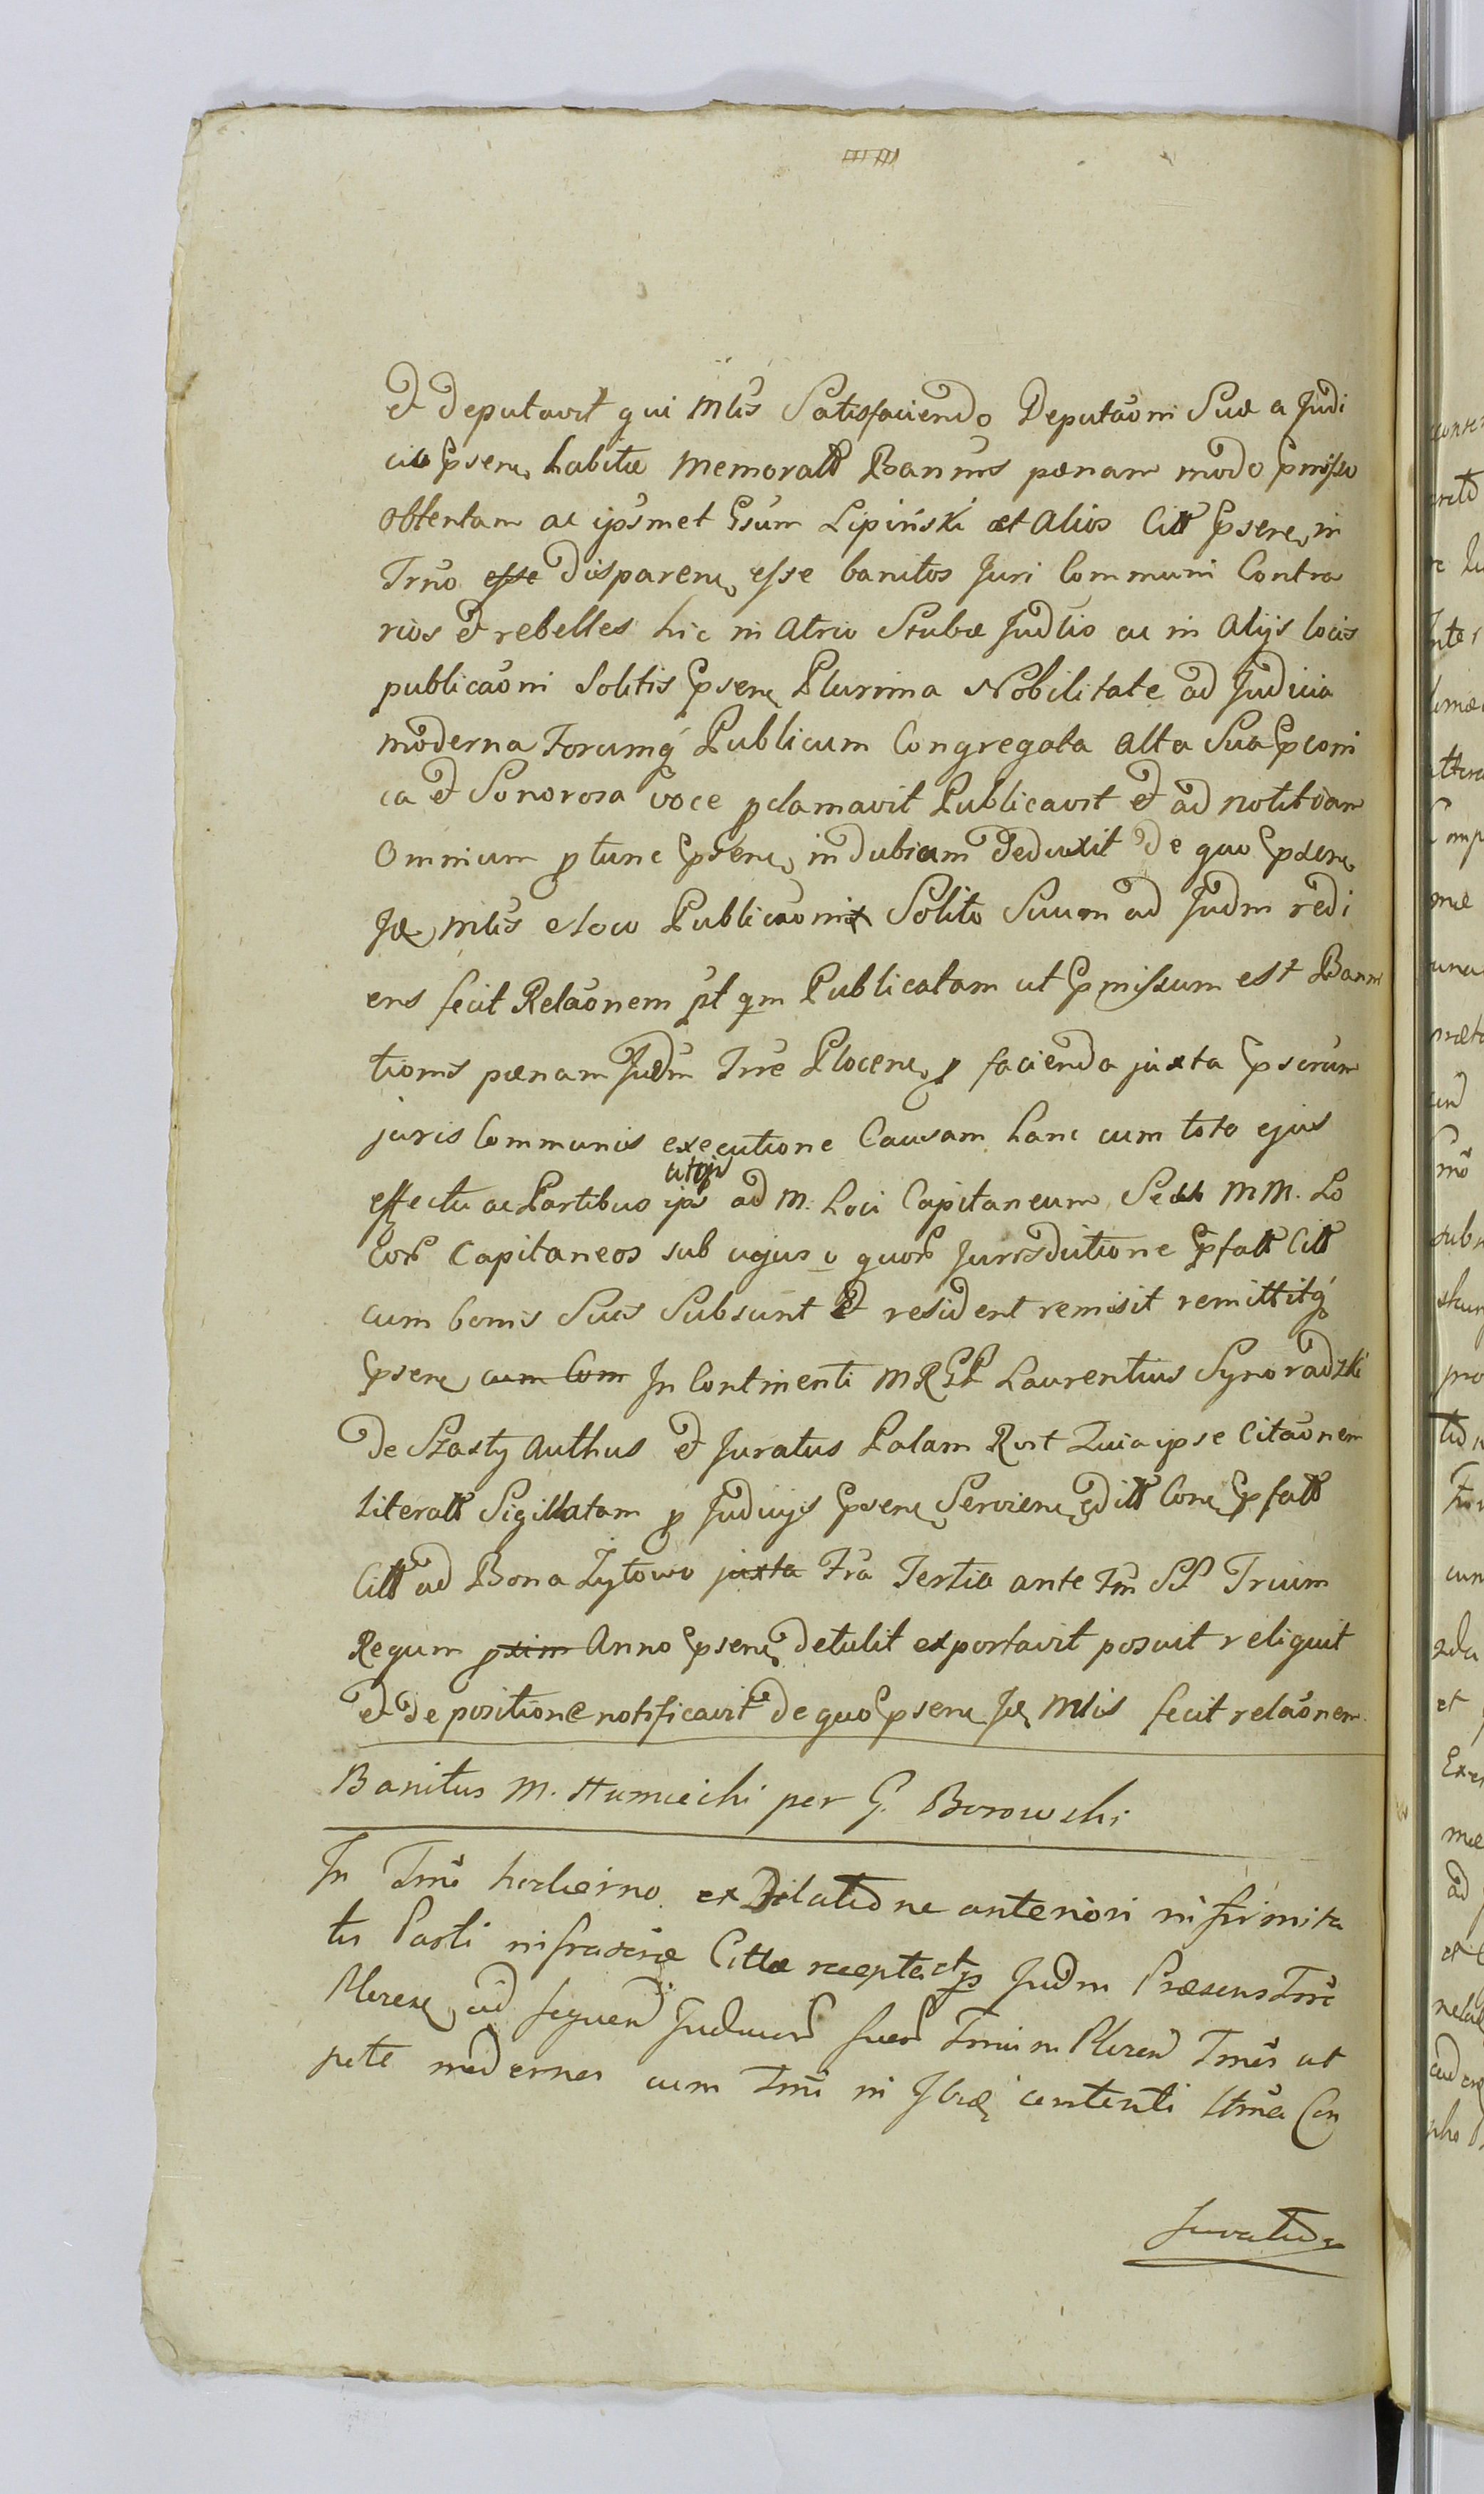 et deputavit qui Mlis Satisfaciendo Deputaoni Suæ a Judi
cio Psen habitæ Memoratt Bannis pænam modo Pmisso
obtentam ac ipsmet Gsum Lipiński et alios Citt Psen in
Trno esse disparen esse banitos Juri Communi Contra
rios et rebelles hic in Atrio Stubæ Judlis ac in alijs locis
publicaoni Solitis Psen Plurima Nobilitate ad Judicia
moderna Forumq Publicum Congregata alta Sua Pconi
ca et Sonorosa voce pclamavit Publicavit et ad notitiam
Omnium p tunc Psen indubiam deduxit de quo Psen
Je Mlis e loco Publicaonis Solito Suum ad Judm redi
ens fecit Relaonem pt qm Publicatam ut Pmissum est Banni
tionis pænam Judm Trre Plocen p facienda juxta Pscrum
juris Communis executione Causam hanc cum toto ejus
effectu ac Partibus ad M. Loci Capitaneum Seu MM. Lo
Cor Capitaneos sub cujus v quor Jurisdictione Pfatt Citt
cum bonis Suis Subsunt et resident remisit remittitq
Psen cum Com In Continenti MRGP Laurentius Synoradzki
de Szasty Authus et Juratus Palam Rvit Quia ipse Citaonem
Literatt Sigillatam p Judicijs Psen Servien editt Con Pfatt
Citt ad Bona Zytowo juxta Fra Tertia ante Fm SS Trium
Regum pxim Anno Psen detulit exportavit posuit reliquit
et depositione notificavit de quo Psen Je Mlis fecit relaonem
Banitus M. Humiecki per G. Borowski
In Tmo hodierno ex Dilatione anteriori infirmita
tis Parti infrascræ Cittæ recepta Judm Præsens Trre
ad sequen Judicior suor Tmin Tmus ut
pete modernes cum Tmi in contenti Con